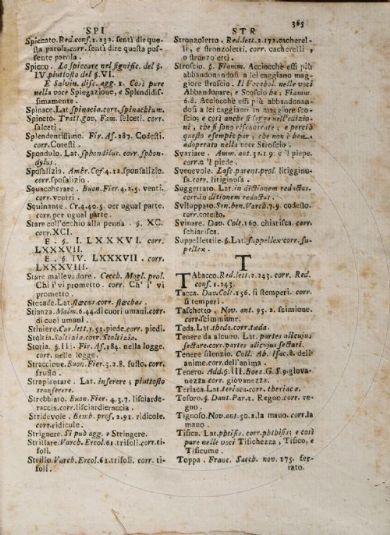 SPI
STR
365
Spiccato. Red. cons. 1. 232. sentì dire que
sta parola. corr. sentì dire questa pos-
sente parola.
Spicco. Lo spiccare nel signific. del §.
IV. piuttosto del §. VI.
E Salvin. disc. agg. 2. Così pure
nella voce Spiegazione, e Splendidis-
simamente.
Spinace. Lat. spinacia. corr. spinachium.
Spineto. Tratt. gov. Fam. selceti. corr.
salceti.
Splendentissimo. Fir. As. 287. Codesti.
corr. Cotesti.
Spondulo. Lat. sphondilus. corr. sphon-
dylus.
Sposalizia. Ambr. Cof. 4.12. sponsalizio.
corr. sposalizio.
Squacchérare. Buon. Fier. 4.1.5. ventì.
corr. ventri.
Squinante. Cr. 4.40.5. occ ugual parte.
corr. per ugual parte.
Stare coll'occhio alla penna. §. XC.
corr. XCI.
E §. I. LXXXVI. corr.
LXXXVII.
E §. IV. LXXXVII. corr.
LXXXVIII.
Stare mallevadore. Cecch. Mogl. prol.
Chi l' vi prometto. corr. Ch' i' vi
prometto.
Stecade. Lat. stæcas. corr. stœchas.
Stianza. Malm. 6.44. di cuori umani. corr.
di cuoi umani.
Stiniere. Car. lett. 1.52. piede. corr. piedi.
Stolzia. Stoltizia. corr. Stoltizia.
Storia. §. III. Fir. As. 284. nella logge.
corr. nelle logge.
Straccione. Buon. Fier. 3.2.8. fusto. corr.
frusto.
Strapiantare. Lat. inserere; piuttosto
transferere.
Strebbiato. Buon. Fier. 4.3.7. lisciarde-
raccia. corr. lisciardieraccia.
Stridevole. Bemb. prof. 2.91. ridicole.
corr. ridicole.
Strignere. Si può agg. e Stringere.
Strillare. Varch. Ercol. 61. trisoli. corr. tri-
soli.
Strillo. Varch. Ercol. 61. trisoli. corr. tri-
soli.
Stronzoletto. Red. lett. 2.172. cacherel-
li, e stronzoletti. corr. cacherelli,
o stronzoletti.
Stroscio. §. Fiamm. Acciocchè essi più
abbandonandosi a lei caggiano mag-
giore Stroscio. Il Vocabol. nelle voci
Abbandonare, e Scoscio dice: Fiamm.
6.6. Acciocchè essi più abbandonando-
si a lei caggiano in maggiore sco-
scio; e così anche si legge nell'edizio-
ni, che si sono riscontrate, e perciò
questo esempio par, che non è ben
adoperato nella voce Stroscio.
Svariare. Amm. ant. 31.2.9. e 'l piepe.
corr. a 'l piede.
Svenevole. Lasc. parent. prol. litigginu-
sa. corr. litiginosa.
Suggettato. Lat. in dictionem redactus.
corr. in ditionem redactus.
Sviluppato. Ser. ben. Varch. 7.9. codesto.
corr. cotesto.
Svinare. Dav. Colt. 160. chiatisca. corr.
schiarisca.
Suppellettile. §. Lat. supplex. corr. su-
pellex.
T
Tabacco. Red. lett. 2.243. corr. Red.
cons. 1.243.
Tacca. Dav. Colt. 156. si stemperi. corr.
si temperi.
Taschetto. Nov. ant. 95.2. scimione.
corr. scimmione.
Teda. Lat. theda. corr. tæda.
Tenere da alcuno. Lat. partes alicujus
sectare. corr. partes alicujus sectari.
Tenere silenzio. Coll. Ab. Isac. 8. dell'
anime. corr. dell'anima.
Tenero. Add. §. III. Bocc. G. S. 9. giova-
nezza corr. giovanezza.
Teriaca. Lat. teriaca. corr. theriaca.
Tesoro. §. Dant. Par. 1. Regno. corr. re-
gno.
Tignoso. Nov. ant. 30.2. la mavo. corr. la
mano.
Tisica. Lat. phtisis. corr. phthisis; e così
pure nelle voci Tisichezza, Tisico, e
Tisicume.
Toppa. Franc. Sacch. nov. 175. fer-
rato.